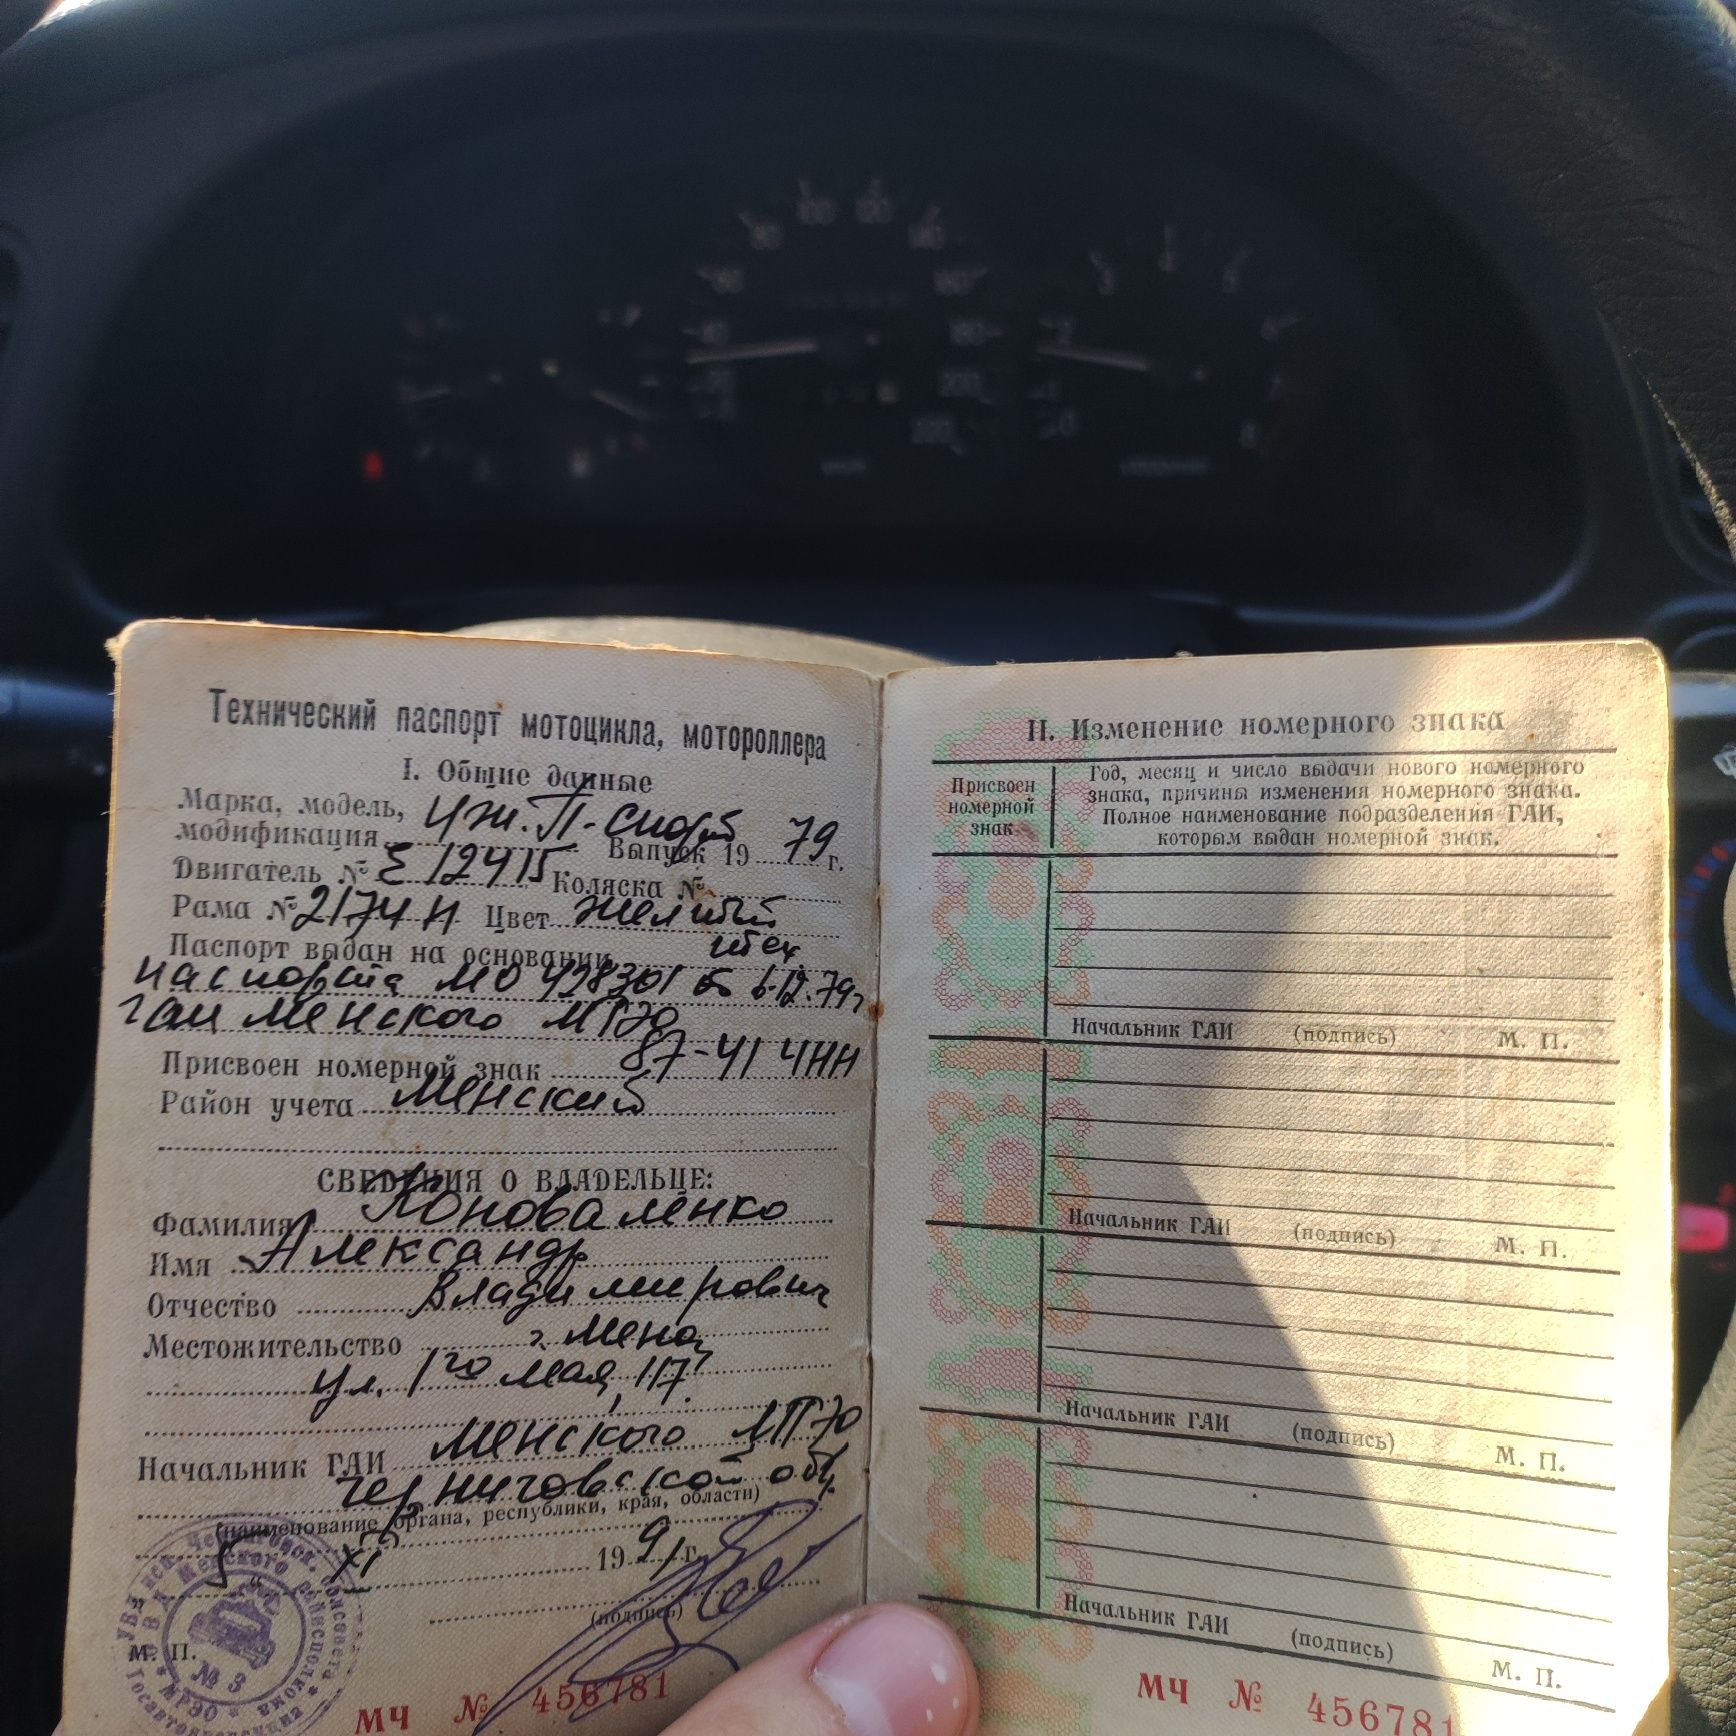 Технический паспорт мотоцикла, мотороллера
I. Общие данные
Марка, модель, Иж.П-спорт
модификация
Выпуск 19 79 г.
Двигатель № Е 12415 Коляска №
Рама № 2174 Н Цвет желтый
Паспорт выдан на основании тех.
паспорта МО 428301 от 6.12.79г
ГАИ Менского МРЭО
Присвоен номерной знак 87-41 ЧНН
Район учета Менский
СВЕДЕНИЯ О ВЛАДЕЛЬЦЕ:
Фамилия Коноваленко
Имя Александр
Отчество Владимирович
Местожительство г. Мена,
ул. 1го Мая, 117
Начальник ГАИ Менского МРЭО
Черниговской обл.
(наименование органа, республики, края, области)
5 XI 19 91 г.
(подпись)
М. П.
№ 3
МЧ № 456781
II. Изменение номерного знака
Присвоен номерной знак
Год, месяц и число выдачи нового номерного
знака, причины изменения номерного знака.
Полное наименование подразделения ГАИ,
которым выдан номерной знак.
Начальник ГАИ (подпись) М. П.
Начальник ГАИ (подпись) М. П.
Начальник ГАИ (подпись) М. П.
Начальник ГАИ (подпись) М. П.
МЧ № 456781